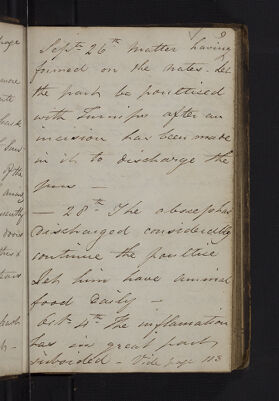 9
Sept. 26th Matter having
formed on the nates. Let
the part be poulticed
with Turnips after an
incision has been made
in it to discharge the
puss —
— 28th The abscess has
Discharged considerably
continue the poultice
Let him have animal
food Daily —
Oct. 4th The inflamation
has in great part
subsided — Vide page 113